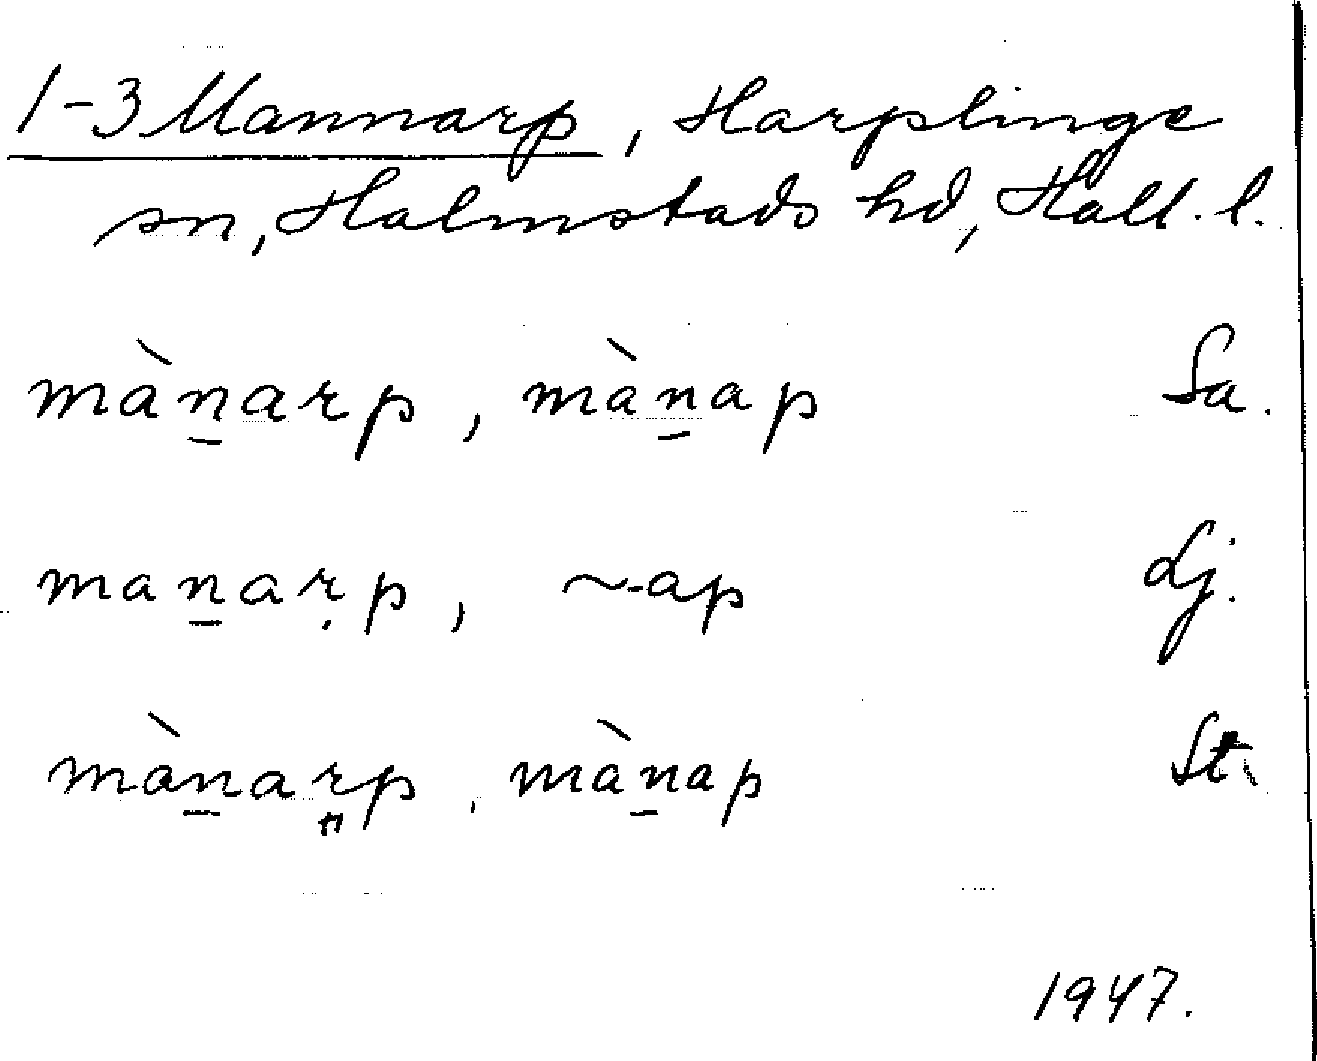 1-3 Mannarp, Harplinge
sn, Halmstads hd, Hall. l.
màn̠arp, màn̠ap Sa.
man̠aṛp, ~-ap Lj.
màn̠arp, màn̠ap St.
1947.